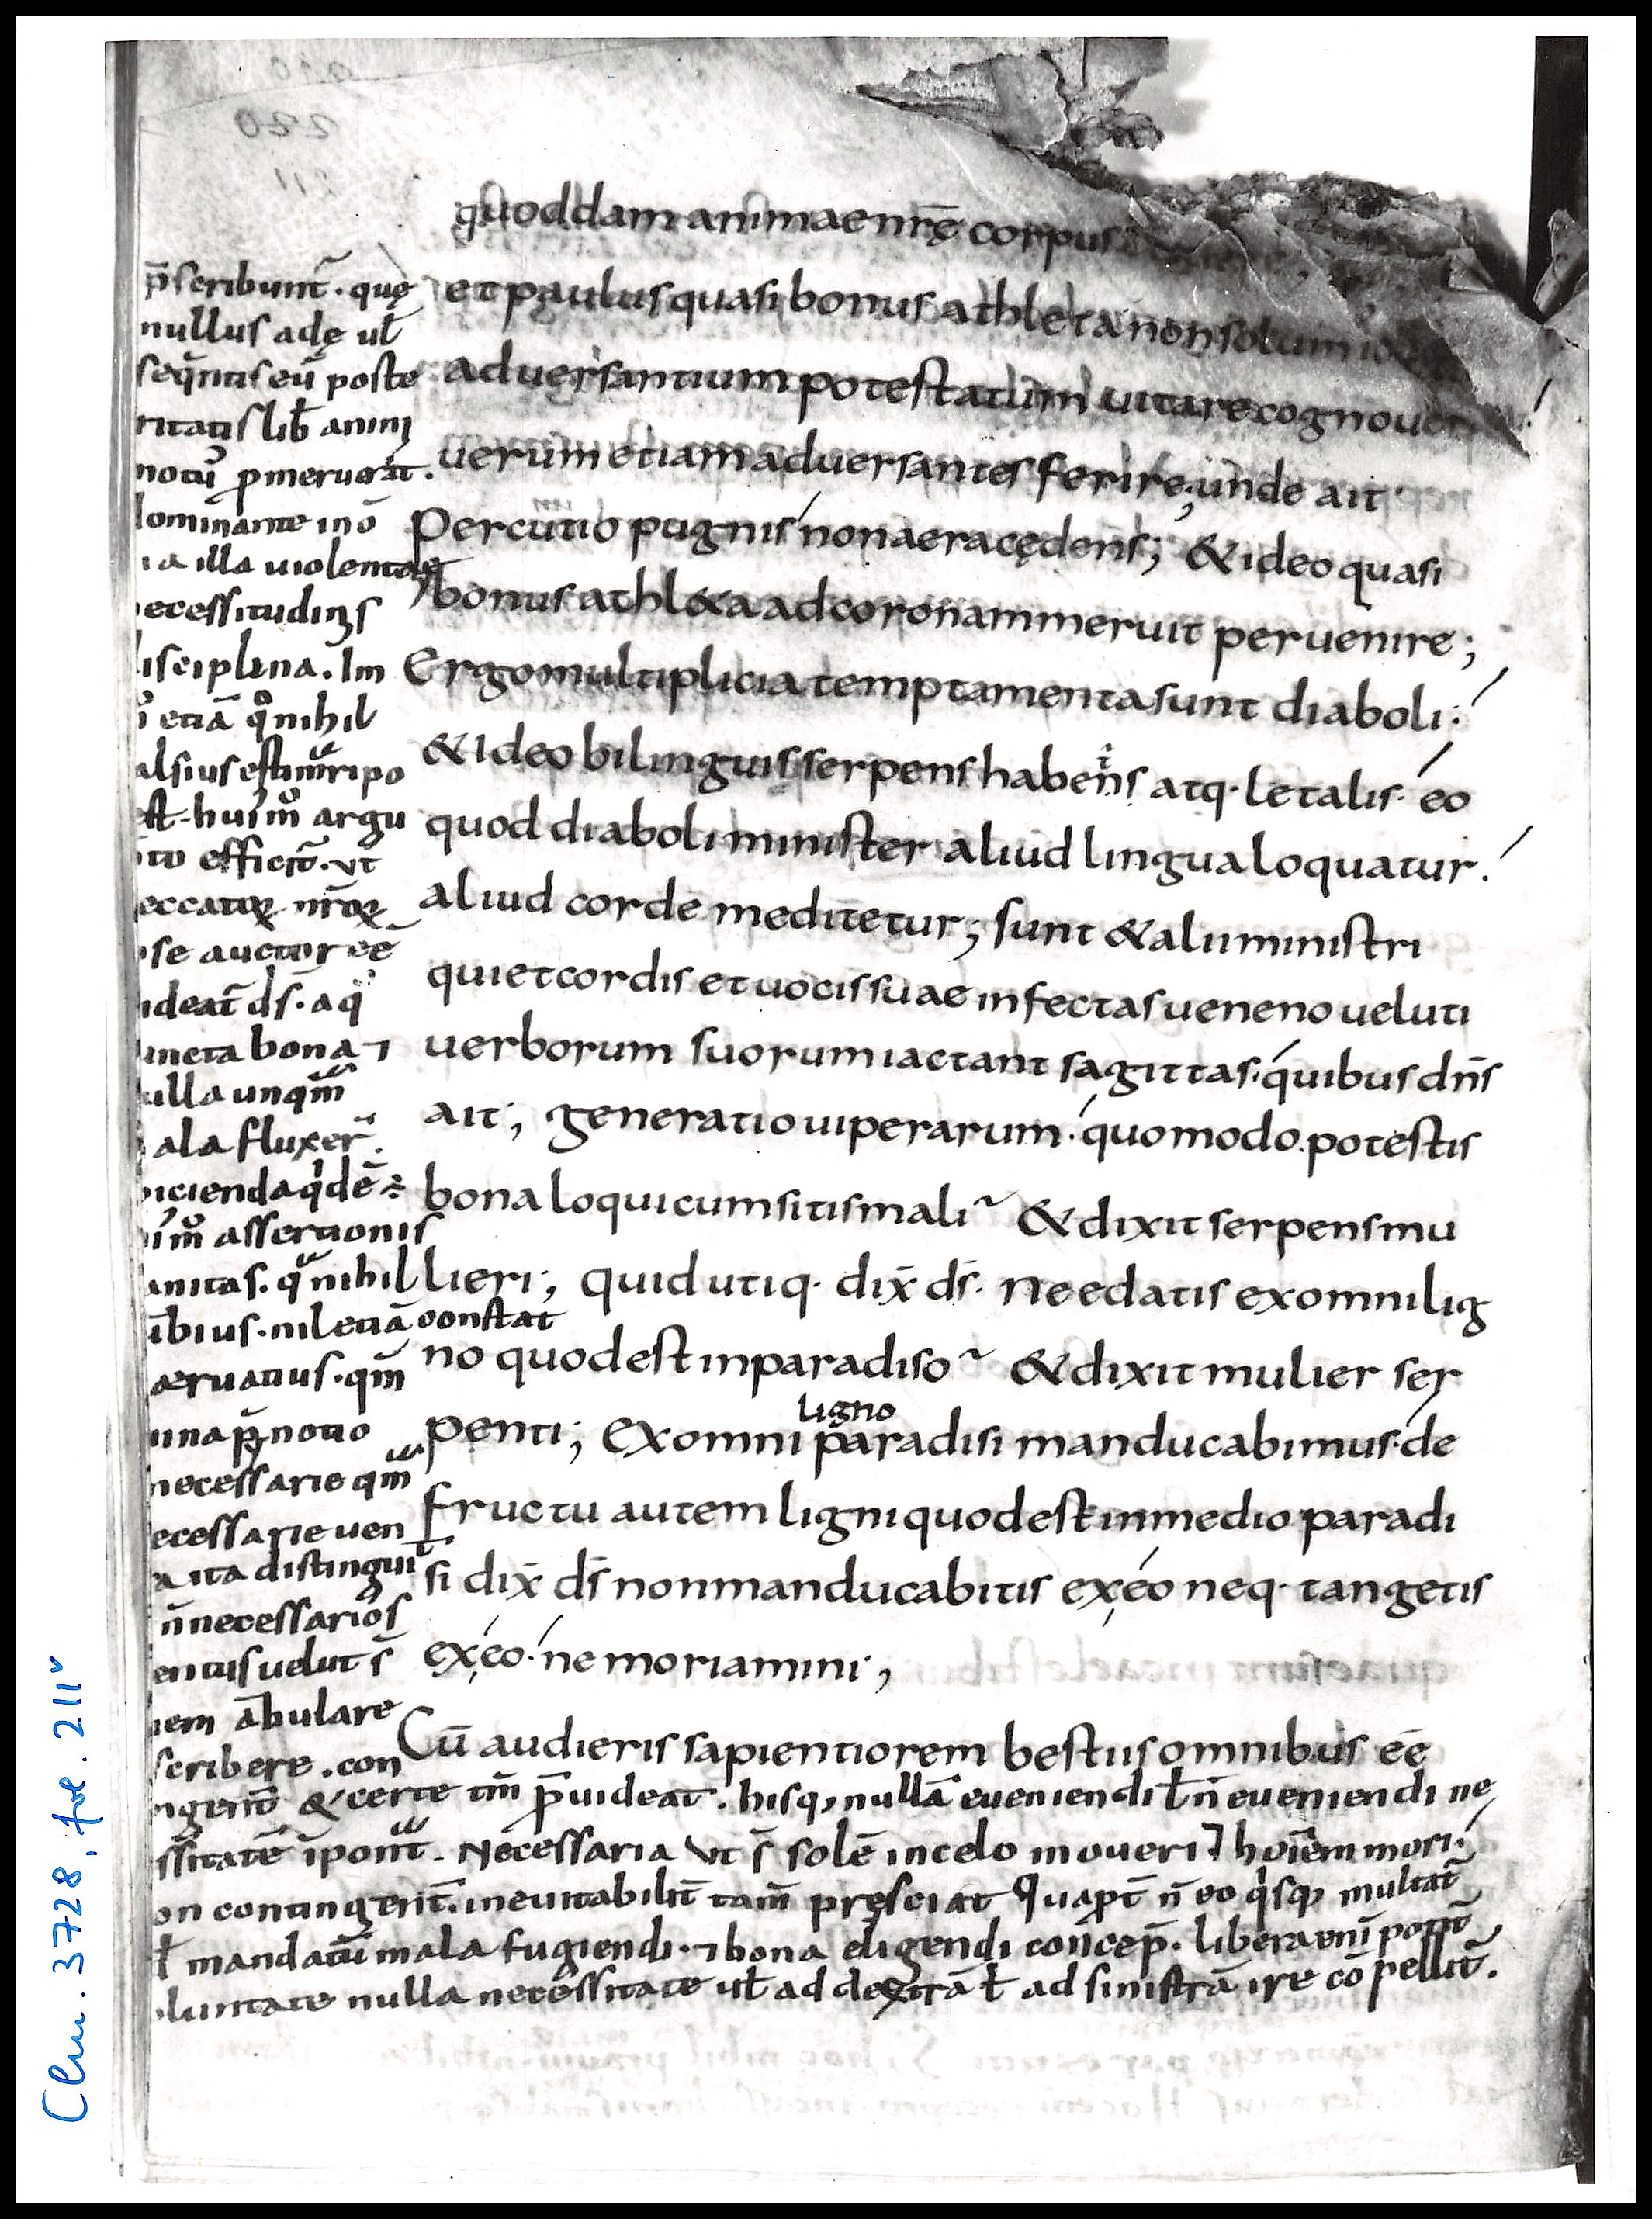 quoddam animae nr̄ę corpus
et paulus quasi bonus athleta non solum
aduersantium potestatum uitare cognouer
uerum etiam aduersantes ferire; unde ait
Percutio pugnis non aera cędens; & ideo quasi
bonus athl&a ad coronam meruit peruenire;
Ergo multiplicia temptamenta sunt diaboli;
& ideo bilinguis serpens habens atq· letalis· eo
quod diaboli minister aliud lingua loquatur.
aliud corde meditetur; sunt & alii ministri
qui et cordis et uocis suae infectas ueneno veluti
uerborum suorum iactant sagittas· quibus dn̄s
ait; generatio uiperarum· quomodo potestis
bona loqui cum sitis mali & dixit serpens mu
lieri; quid utiq· dix̄ ds̄· Ne edatis ex omni lig
no quod est in paradiso & dixit mulier ser
ligno
penti; Ex omni paradisi manducabimus· de
fructu autem ligni quod est in medio paradi
si dix̄ ds̄ non manducabitis ex eo neq· tangetis
ex eo· ne moriamini;
Cū audieris sapientiorem bestiis omnibus eē
p̄scribunt̄· quę
nullus adę ul̄
seq̄ntis eū poste
ritatis lib̄ animi
notū
ominante in
ia illa uiolentae
ecessitudinis
isciplina. Im
etiā qđ nihil
est· argu
to efficit̄· vt
se auctor eē
ideat̄ ds̄· a q
uncta bona ⁊
ulla unq̄m
ala fluxer̄
icienda q'dē ÷
assertionis
anitas· nihil
ībius· nil etiā constat
aeruatius· qm̄
una p̄notio
necessarie qm̄
ecessarie uen
a ita distinguit̄
n̄ necessarios
entus uelut s̄
iem ābulare
scribere . con
& certe tm̄ p̄uideat̄. hisq; nullā eueniendi ł n̄ eueniendi ne
ssitatē īponit̄. Necessaria vt s̄ solē in celo moueri ⁊ hoīem mori·
on contingerit̄. ineuitabilit̄ tam̄ pręsciat Quapt̄ n̄ eo
ł mandatū mala fugiendi· ⁊ bona eligendi concep̄.
luntate nulla necessitate ul̄ ad dextrā ł ad sinistrā ire cōpellit̄.
Clm. 3728, fol. 211v